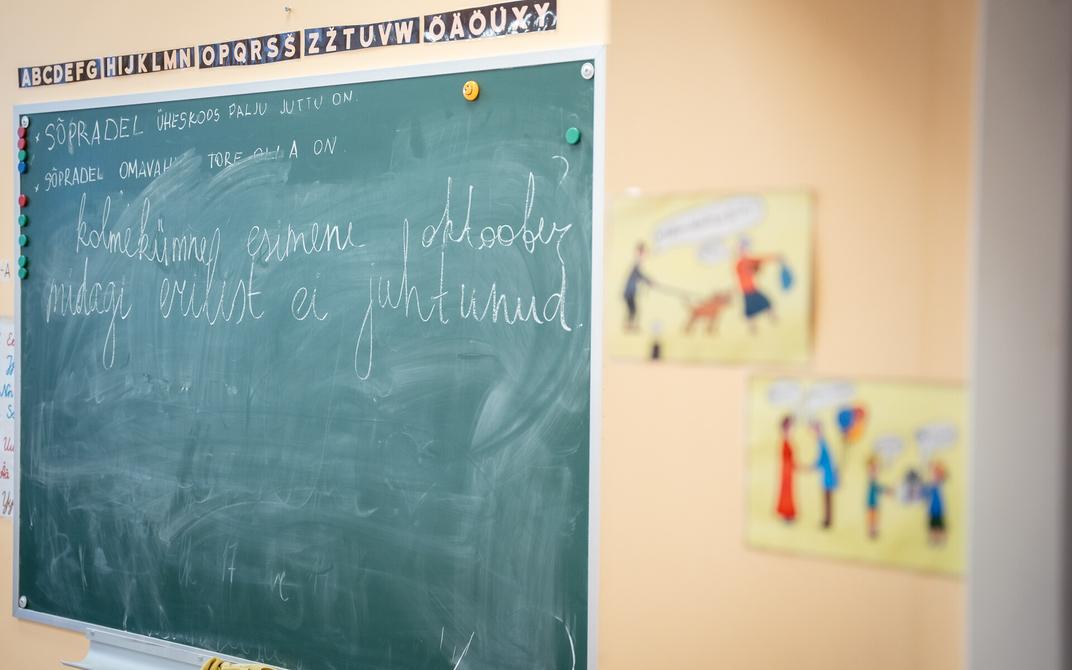 ABCDEFG HIJKLMN OPQRSŠ ZŽTUVW ÕÄÖÜXY
* SÕPRADEL ÜHESKOOS PALJU JUTTU ON.
* SÕPRADEL TORE A ON.
kolmekümne esimene oktoober
midagi erilist ei juhtunud.